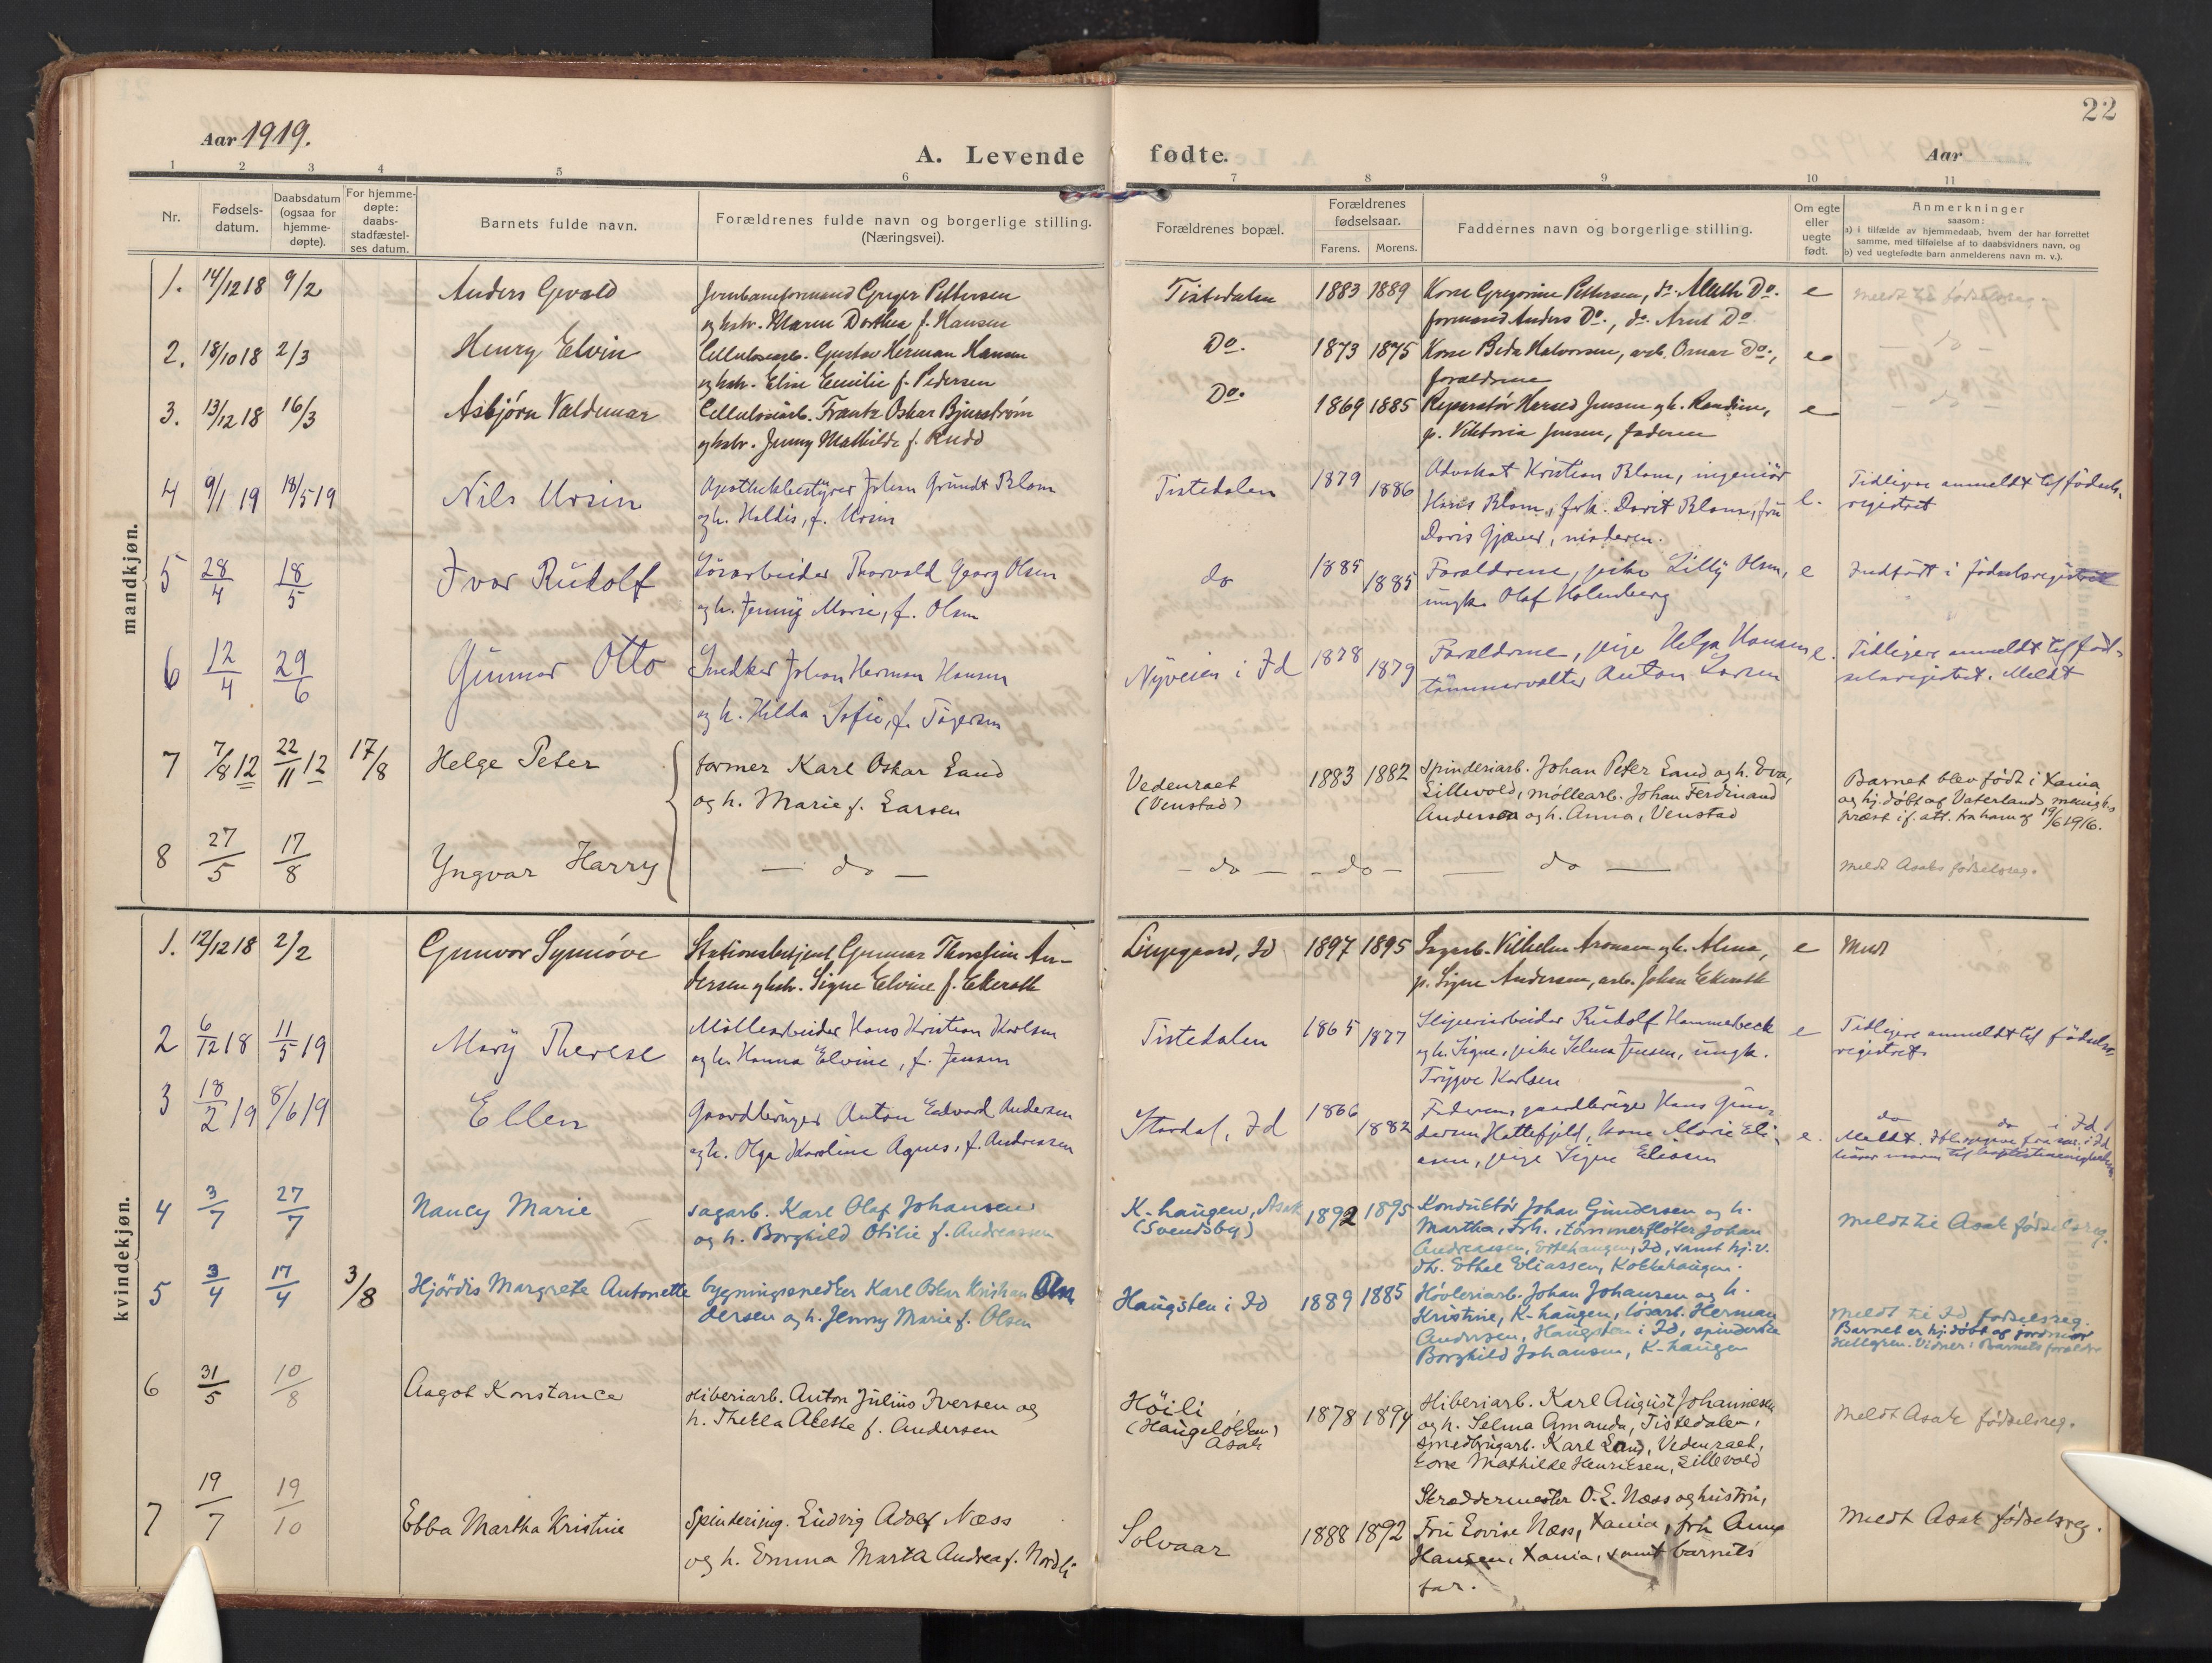 22
Aar 1919.
A. Levende fødte.
Aar
1 2 3 4 5 6 7 8 9 10 11
Nr.
Fødsels-
datum.
Daabsdatum
(ogsaa for
hjemme-
døpte).
For hjemme-
døpte:
daabs-
stadfæstel-
ses datum.
Barnets fulde navn.
Forældrenes fulde navn og borgerlige stilling.
(Næringsvei).
Forældrenes bopæl.
Forældrenes
fødselsaar.
Farens. Morens.
Faddernes navn og borgerlige stilling.
Om egte
eller
uegte
født.
Anmerkninger
saasom:
a) i tilfælde av hjemmedaab, hvem der har forrettet
samme, med tilføielse af to daabsvidners navn, og
b) ved uegtefødte barn anmelderens navn m. v.).
mandkjøn.
1. 14/12 18 9/2 Anders Gevald
Jernbaneformand Greger Pettersen
og hstr. Karen Dorthea f. Hansen
Tistedalen 1883 1889
Kone Gregorine Pettersen, do. Do.
formand Anders Do., do. Arnt Do
e
meldt til fødselsreg.
2. 18/10 18 2/3 Henry Elvin
Cellulosearb. Gustav Herman Hansen
og hstr. Elise Emilie f. Pedersen
Do. 1873 1875
Kone Beda Halvorsen, arb. Osmar Do.,
forældrene
e
- do -
3. 13/12 18 16/3 Asbjørn Valdemar
Cellulosearb. Frantz Oskar Bjurstrøm
og hstr. Jenny Mathilde f. Rudd
Do. 1869 1885
Reparatør Jensen og h. Randine,
p. Viktoria Jensen, faderen
e
- do -
4 9/1 19 18/5 19 Nils Ursin
Apothekbestyrer Johan Grundt Blom
og h. Haldis, f. Ursin
Tistedalen 1879 1886
Advokat Kristian Blom, ingeniør
Hans Blom, frk. Dorit Blom, fru
Doris Gjæver, moderen.
e.
Tidligere anmeldt til fødsels-
registret
5 28/4 18/5 Ivar Rudolf
Løsarbeider Thorvald Georg Olsen
og h. Jenny Marie, f. Olsen
do 1885 1885
Forældrene, pike Lilly Olsen,
ungk. Olaf Holmberg
e
Indført i fødselsregistret
6 12/4 29/6 Gunnar Otto
Snedker Johan Herman Hansen
og h. Hilda Sofie, f. Tøgersen
Nyveien i Id 1878 1879
Forældrene, pige Helga Hansen
tømmervalter Anton Larsen
e.
Tidligere anmeldt til fød-
selsregistret. Meldt
7 7/8 12 22/11 12 17/8 Helge Peter
former Karl Oskar Lund
og h. Marie f. Larsen
Vedenraet
(Venstad)
1883 1882
Spinderiarb. Johan Peter Lund og h. Eva,
Lillevold, møllearb. Johan Ferdinand
Anderson og h. Anna, Venstad
Barnet blev født i Xania
og hj. døbt af Vaterlands menigh.s
præst if. att. fra ham af 19/6 1916.
8 27/5 17/8 Yngvar Harry
- do -
- do - - do - - do -
meldt Asaks fødselsreg.
kvindekjøn.
1. 12/12 18 2/2 Gunvor Synnøve
Stationsbetjent Gunnar Thorstein An-
dersen og hstr. Signe Elvine f. Ekeroth
Liegaard, Id 1897 1895
Sagarb. Vilhelm Aronsen og h. Alma,
p. Signe Andersen, arb. Johan Ekeroth
e
Meldt
2 6/12 18 11/5 19 Mary Therese
Møllearbeider Hans Kristian Karlsen
og h. Hanna Elvine, f. Jensen
Tistedalen 1865 1877
Sliperiarbeider Rudolf Hammerbeck
og h. Signe, pike Selma Jensen, ungk.
Trygve Karlsen
e
Tidligere anmeldt til fødsels-
registret.
3 18/2 19 8/6 19 Ellen
Gaardbruger Anton Edvard Andersen
og h. Olga Karoline Agnes, f. Andreassen
Stordal, Id 1866 1882
Faderen, gaardbruger Hans Gun-
dersen Hattefjeld, kone Marie Eli-
asen, pige Signe Eliasen
e.
do do i Id
Meldt.
4 3/7 27/7 Nancy Marie
sagarb. Karl Olaf Johansen
og h. Borghild Otilie f. Andreassen
K-haugen, Asak
(Svendsby)
1892 1895
Konduktør Johan Gundersen og h.
Martha, Frh., tømmerfløter Johan
Andreassen, Ertehaugen, Id, samt hj. v.
dtr. Ethel Eliassen, Kokkehaugen.
meldt til Asak fødselsreg.
5 3/4 17/4 3/8 Hjørdis Margrete Antonette
bygningssnedker Karl Kristian
dersen og h. Jenny Marie f. Olsen
Haugsten i Id 1889 1885
Høvleriarb. Johan Johansen og h.
Kristine, K-haugen, løsarb. Herman
Andersen, Haugsten i Id, spinderske
Borghild Johansen, K-haugen
meldt til Id fødselsreg.
Barnet er hj. døbt af jordmor
Hellgren. Vidner: Barnets forældre
6 31/5 10/8 Aagot Konstance
sliberiarb. Anton Julius Iversen og
h. Thekla Alette f. Andersen
Høili
(Haugeløkken)
Asak
1878 1894
Sliberiarb. Karl August Johannessen
og h. Selma Amanda, Tistedalen,
smedbrugarb. Karl Lund, Vedenraet,
kone Mathilde Henriksen, Lillevold
meldt Asak fødselsreg.
7 19/7 19/10 Ebba Martha Kristine
Spinderiing. Ludvig Adolf Næss
og h. Emma Marta Andrea f. Nordli
Solvaar 1888 1892
Skræddermester O. L. Næss og hustru,
Fru Lovise Næss, Xania, frk Anna
Hansen, Xania, samt barnets
far.
meldt Asak fødselsreg.